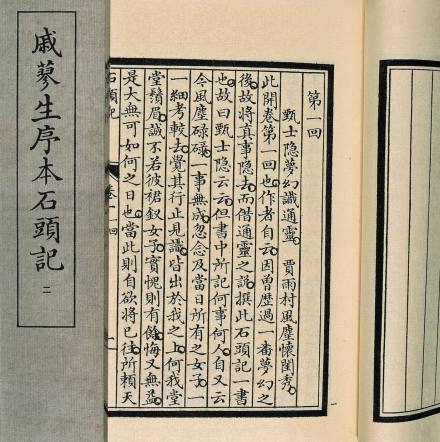 戚蓼生序本石頭記 二
第一回
甄士隐夢幻識通靈 賈雨村風塵懷閨秀
此開卷第一回也作者自云因曾歷過一番夢幻之
後故將真事隐去而借通靈之說撰此石頭記一書
也故曰甄士隐云云但書中所記何事何人自又云
今風塵碌碌一事無成忽念及當日所有之女子一
一細考較去覺其行止見識皆出於我之上何我堂
堂鬚眉誠不若彼裙釵女子實愧則有餘悔又無益
是大無可如何之日也當此則自欲將已往所頼天
石頭記